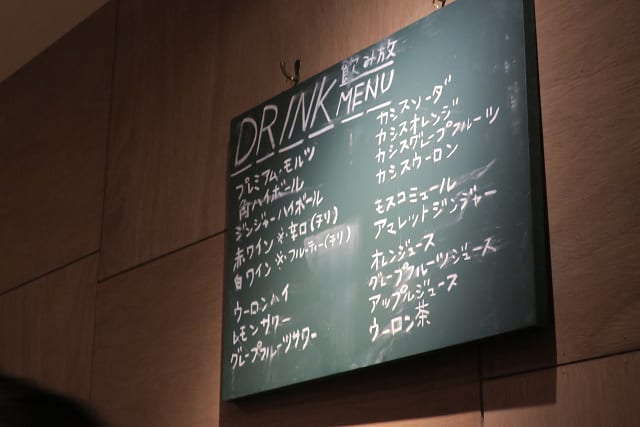 DRINK 飲み放 MENU
プレミアム・モルツ
角ハイボール
ジンジャーハイボール
赤ワイン ※・辛口(チリ)
白ワイン ※・フルーティー(チリ)
ウーロンハイ
レモンサワー
グレープフルーツサワー
カシスソーダ
カシスオレンジ
カシスグレープフルーツ
カシスウーロン
モスコミュール
アマレットジンジャー
オレンジュース
グレープフルーツジュース
アップルジュース
ウーロン茶